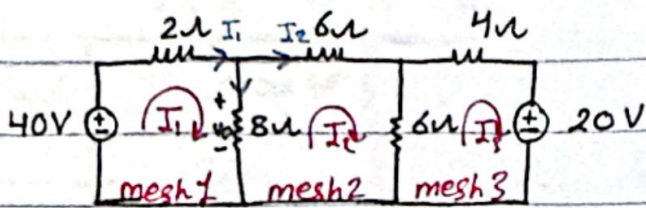 2Ω I₁ I₂ 6Ω 4Ω
40V I₁ + 8Ω I₂ 6Ω I₃ 20 V
-
mesh1 mesh2 mesh3